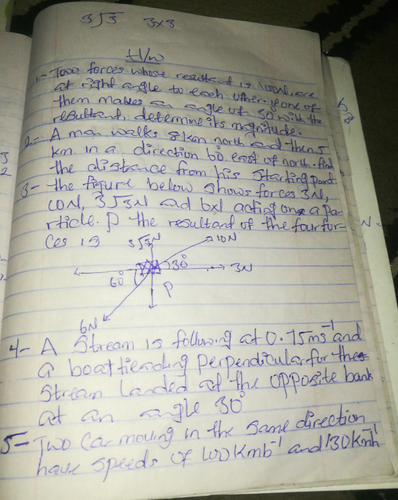 3√3 3×3
H/w
1- Two forces whose resultant is 100N are
at right angle to each other. If one of
them makes an angle of 30 with the
resultant, determine its magnitude.
2- A man walks 8km north and then 5
km in a direction 60 east of north. find
the distance from his starting point
3- the figure below shows forces 3N,
10N, 3√3N ad 6N acting on a pa-
rticle. P the resultant of the four for-
ces is
3√3N
10N
30°
3N
60°
P
6N
4- A Stream is following at 0.75ms⁻¹ and
a boat heading perpendicular for the
Stream landed at the opposite bank
at an angle 30°
5- Two car moving in the same direction
have speeds of 100kmh⁻¹ and 130kmh⁻¹